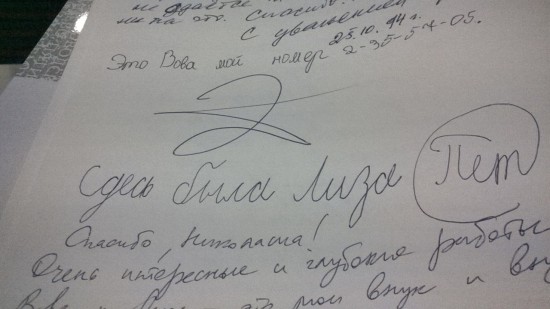 не удаётся
на это. Спасибо.
с уважением
25.10.94 г.
Это Вова мой номер 2-35-54-05.
Сдесь была Лиза Пет
Спасибо, Николаша!
Очень интересные и глубокие работы
это мой внук и